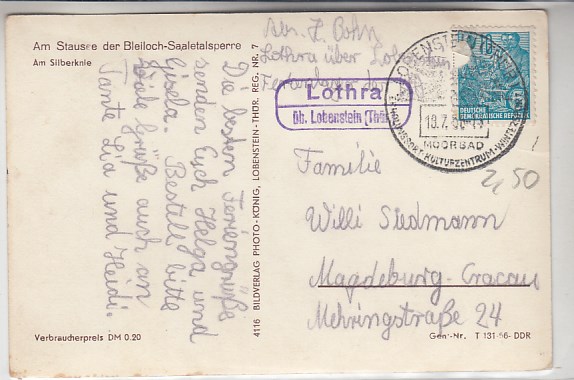 Am Stausee der Bleiloch-Saaletalsperre
Am Silberknie
Die besten Feriengrüße
senden Euch Helga und
Gisela. Bestellt bitte
viele Grüße auch an
Tante Lia und Heidi.
Verbraucherpreis DM 0.20
4116 BILDVERLAG PHOTO-KÖNIG, LOBENSTEIN-THÜR. REG. NR. 7
Abs. I. Bohn
Lothra über Lob
Ferienlager
Lothra
üb. Lobenstein (Thür
LOBENSTEIN (THÜR)
MOORBAD
KULTURZENTRUM
DEUTSCHE
DEMOKRATISCHE REPUBLIK
2,50
Familie
Willi Siedmann
Magdeburg-Cracau
Mehringstraße 24
Gen.-Nr. T 131-56-DDR